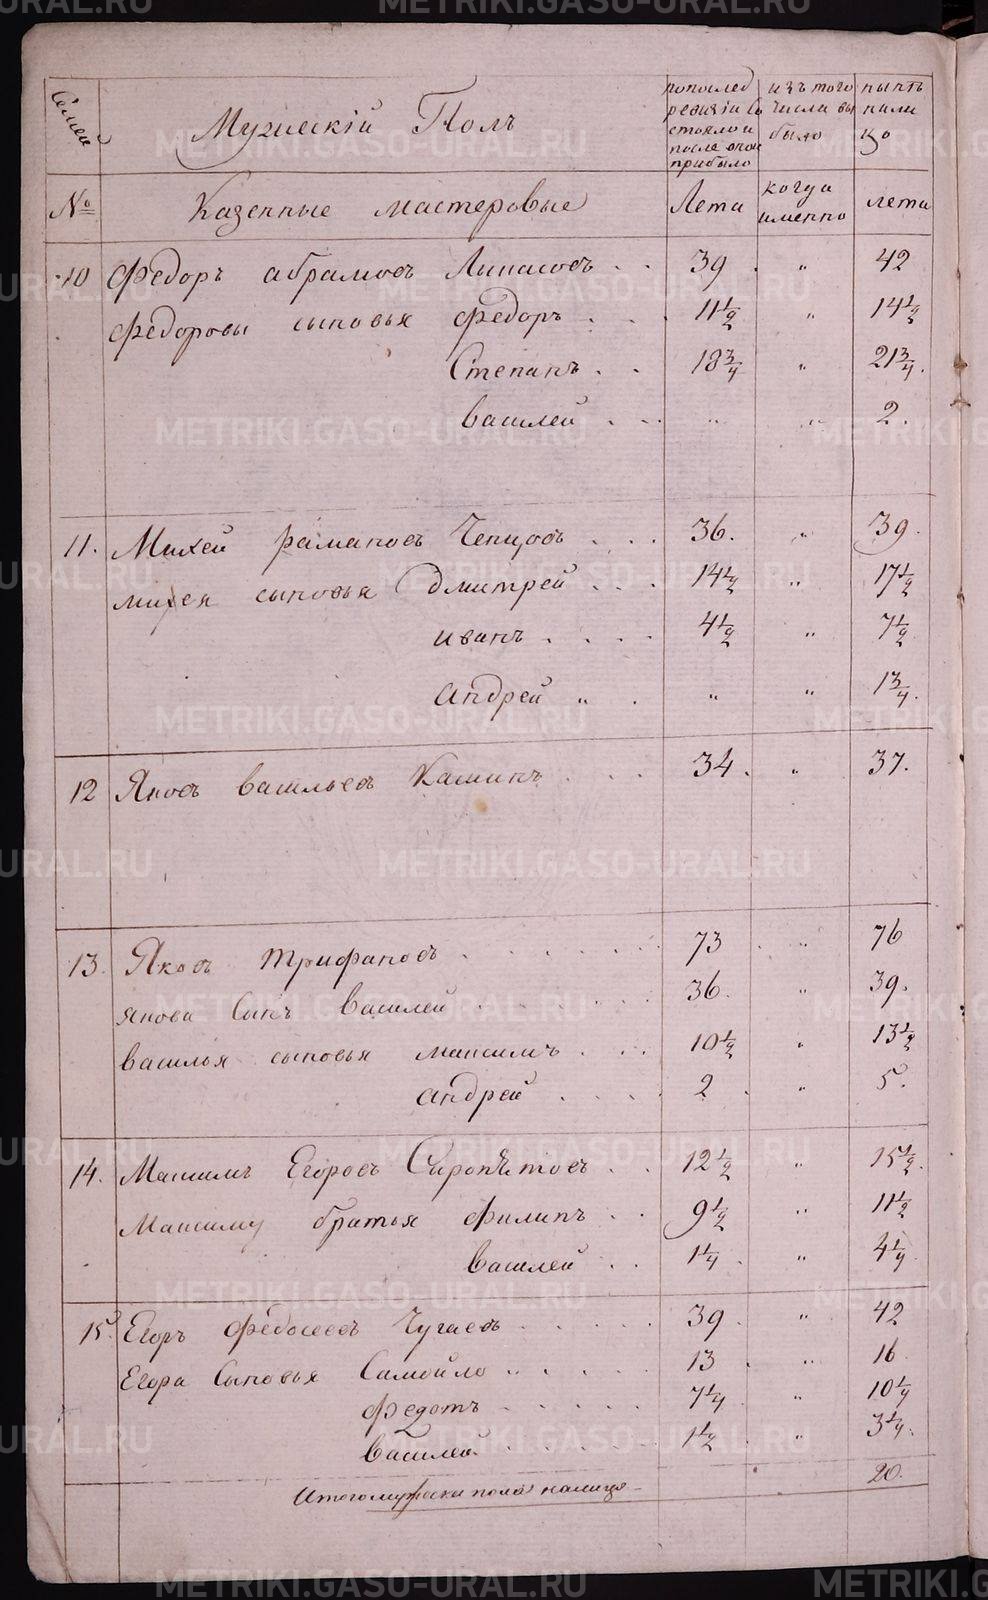 Семей Мужескій Полъ по послед ревизіи со стояло и после оной прибыло изъ того числа вы было ныне на лицо
№ Казенные мастеровые Лета когда именно лета
10 Федоръ абрамовъ Липасовъ . . 39 . „ 42
Федоровы сыновья Федоръ . . . 11 1/2 „ 14 1/2
Степанъ . . 18 3/4 „ 21 3/4.
Василей . . . „ „ 2.
11. Михей рамановъ Чепцовъ . . . 36. „ 39.
михея сыновья Дмитрей . . . 14 1/2 „ 17 1/2
иванъ . . . . 4 1/2 „ 7 1/2
андрей „ . „ „ 1 3/4.
12 Яковъ васильевъ Каминъ . . . 34. „ 37.
13. Яковъ Трифановъ . . . . . . 73 . „ 76
якова Сынъ Василей . . . . . . 36. „ 39.
василья сыновья максимъ . . . 10 1/2 „ 13 1/2
андрей . . . . 2 . „ 5.
14. Максимъ Егоровъ Сыропѣтовъ . . 12 1/2 „ 15 1/2.
Максиму братья филипъ . . 9 1/2 „ 11 1/2
Василей . . 1 1/4 . „ 4 1/4
15. Егоръ Федосеевъ Чугаевъ . . . . . 39 . „ 42
Егора Сыновья Самойло . . . . . 13 . „ 16
Федотъ . . . . . 7 1/4 „ 10 1/4
Василей . . . . . . 1 1/2 „ 3 1/4.
Итого мужеска пола налицо 20.
METRIKI.GASO-URAL.RU